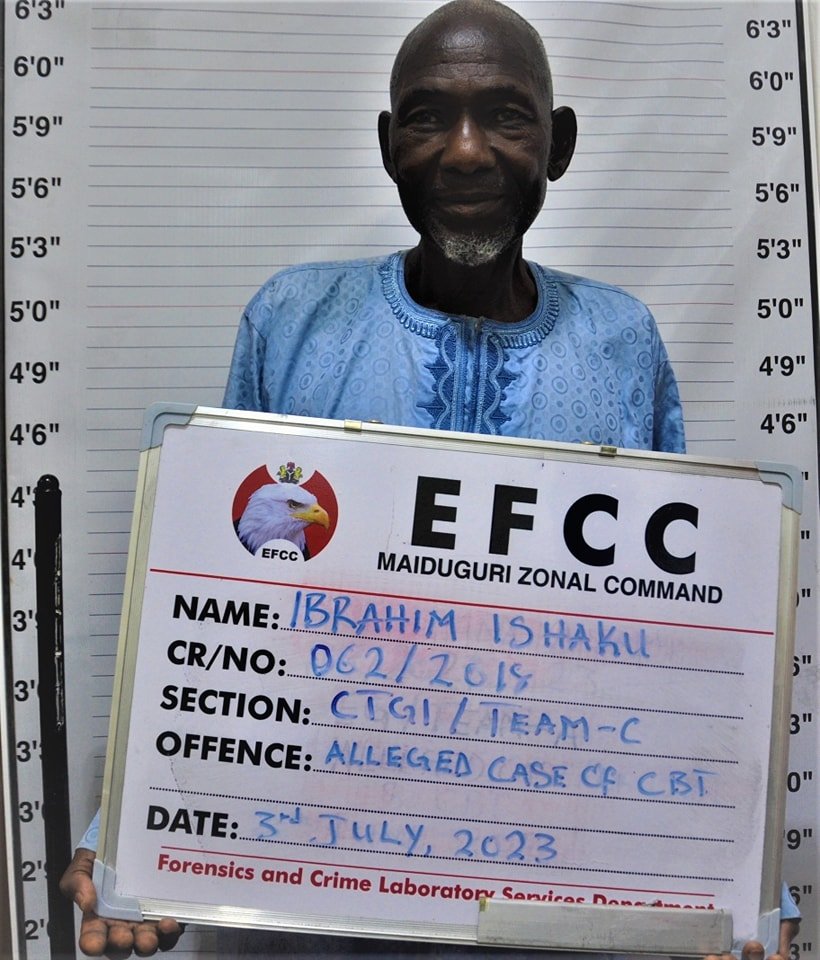 6'3" 6'3"
6'0" 6'0"
5'9" 5'9"
5'6" 5'6"
5'3" 5'3"
5'0" 5'0"
4'9" 4'9"
4'6" 4'6"
EFCC
EFCC
MAIDUGURI ZONAL COMMAND
NAME: IBRAHIM ISHAKU
CR/NO: 062/2018
SECTION: CTGI/TEAM-C
OFFENCE: ALLEGED CASE OF CBT
DATE: 3rd JULY, 2023
Forensics and Crime Laboratory Services Department